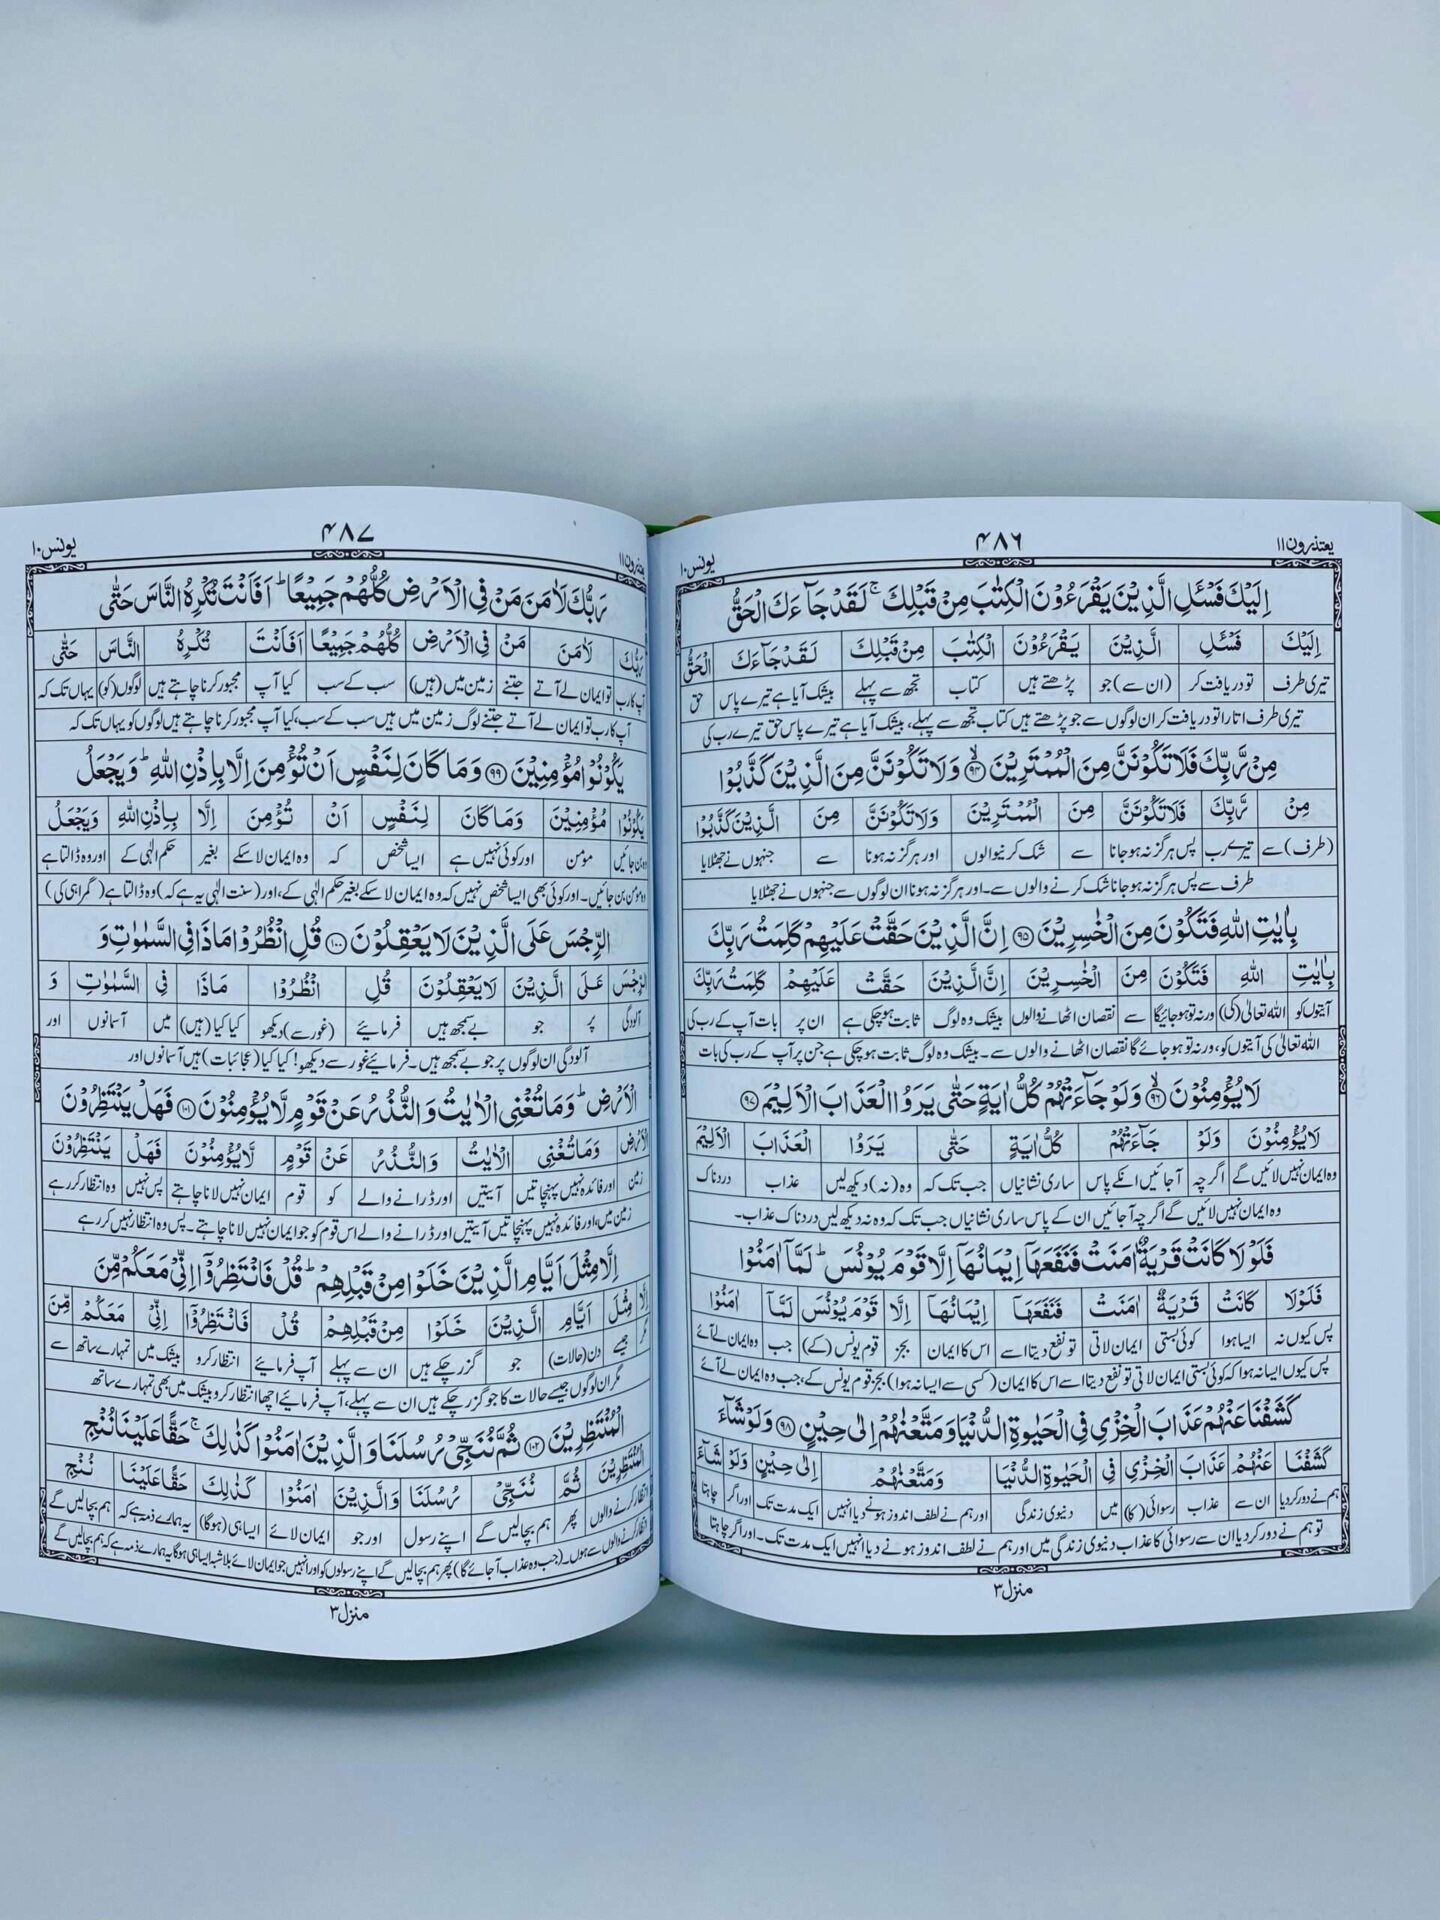 یعتذرون۱۱ ۴۸۶ یونس۱۰
اِلَیۡکَ فَسۡـَٔلِ الَّذِیۡنَ یَقۡرَءُوۡنَ الۡکِتٰبَ مِنۡ قَبۡلِکَ ۚ لَقَدۡ جَآءَکَ الۡحَقُّ
اِلَیۡکَ فَسۡـَٔلِ الَّذِیۡنَ یَقۡرَءُوۡنَ الۡکِتٰبَ مِنۡ قَبۡلِکَ لَقَدۡ جَآءَکَ الۡحَقُّ
تیری طرف تو دریافت کر (ان سے) جو پڑھتے ہیں کتاب تجھ سے پہلے بیشک آیا ہے تیرے پاس حق
تیری طرف اتارا تو دریافت کر ان لوگوں سے جو پڑھتے ہیں کتاب تجھ سے پہلے، بیشک آیا ہے تیرے پاس حق تیرے رب کی
مِنۡ رَّبِّکَ فَلَا تَکُوۡنَنَّ مِنَ الۡمُمۡتَرِیۡنَ ﴿۹۴﴾ۙ وَلَا تَکُوۡنَنَّ مِنَ الَّذِیۡنَ کَذَّبُوۡا
مِنۡ رَّبِّکَ فَلَا تَکُوۡنَنَّ مِنَ الۡمُمۡتَرِیۡنَ وَلَا تَکُوۡنَنَّ مِنَ الَّذِیۡنَ کَذَّبُوۡا
(طرف) سے تیرے رب پس ہرگز نہ ہوجانا سے شک کرنیوالوں اور ہرگز نہ ہونا سے جنہوں نے جھٹلایا
طرف سے پس ہرگز نہ ہوجانا شک کرنے والوں سے۔ اور ہرگز نہ ہونا ان لوگوں سے جنہوں نے جھٹلایا
بِاٰیٰتِ اللّٰہِ فَتَکُوۡنَ مِنَ الۡخٰسِرِیۡنَ ﴿۹۵﴾ اِنَّ الَّذِیۡنَ حَقَّتۡ عَلَیۡہِمۡ کَلِمَتُ رَبِّکَ
بِاٰیٰتِ اللّٰہِ فَتَکُوۡنَ مِنَ الۡخٰسِرِیۡنَ اِنَّ الَّذِیۡنَ حَقَّتۡ عَلَیۡہِمۡ کَلِمَتُ رَبِّکَ
آیتوں کو اللہ تعالیٰ (کی) ورنہ تو ہوجائیگا سے نقصان اٹھانے والوں بیشک وہ لوگ ثابت ہوچکی ہے ان پر بات آپ کے رب کی
اللہ تعالیٰ کی آیتوں کو، ورنہ تو ہوجائے گا نقصان اٹھانے والوں سے۔ بیشک وہ لوگ ثابت ہوچکی ہے جن پر آپ کے رب کی بات
لَا یُؤۡمِنُوۡنَ ﴿۹۶﴾ۙ وَلَوۡ جَآءَتۡہُمۡ کُلُّ اٰیَۃٍ حَتّٰی یَرَوُا الۡعَذَابَ الۡاَلِیۡمَ ﴿۹۷﴾
لَا یُؤۡمِنُوۡنَ وَلَوۡ جَآءَتۡہُمۡ کُلُّ اٰیَۃٍ حَتّٰی یَرَوُا الۡعَذَابَ الۡاَلِیۡمَ
وہ ایمان نہیں لائیں گے اگرچہ آجائیں انکے پاس ساری نشانیاں جب تک کہ وہ (نہ) دیکھ لیں عذاب دردناک
وہ ایمان نہیں لائیں گے اگرچہ آجائیں ان کے پاس ساری نشانیاں جب تک کہ وہ نہ دیکھ لیں دردناک عذاب۔
فَلَوۡ لَا کَانَتۡ قَرۡیَۃٌ اٰمَنَتۡ فَنَفَعَہَاۤ اِیۡمَانُہَاۤ اِلَّا قَوۡمَ یُوۡنُسَ ؕ لَمَّاۤ اٰمَنُوۡا
فَلَوۡلَا کَانَتۡ قَرۡیَۃٌ اٰمَنَتۡ فَنَفَعَہَاۤ اِیۡمَانُہَاۤ اِلَّا قَوۡمَ یُوۡنُسَ لَمَّاۤ اٰمَنُوۡا
پس کیوں نہ ایسا ہوا کوئی بستی ایمان لاتی تو نفع دیتا اسے اس کا ایمان بجز قوم یونس (کے) جب وہ ایمان لے آئے
پس کیوں ایسا نہ ہوا کہ کوئی بستی ایمان لاتی تو نفع دیتا اسے اس کا ایمان (کسی سے ایسا نہ ہوا) بجز قوم یونس کے، جب وہ ایمان لے آئے
کَشَفۡنَا عَنۡہُمۡ عَذَابَ الۡخِزۡیِ فِی الۡحَیٰوۃِ الدُّنۡیَا وَمَتَّعۡنٰہُمۡ اِلٰی حِیۡنٍ ﴿۹۸﴾ وَلَوۡ شَآءَ
کَشَفۡنَا عَنۡہُمۡ عَذَابَ الۡخِزۡیِ فِی الۡحَیٰوۃِ الدُّنۡیَا وَمَتَّعۡنٰہُمۡ اِلٰی حِیۡنٍ وَلَوۡ شَآءَ
ہم نے دور کردیا ان سے عذاب رسوائی (کا) میں دنیوی زندگی اور ہم نے لطف اندوز ہونے دیا انہیں ایک مدت تک اور اگر چاہتا
تو ہم نے دور کردیا ان سے رسوائی کا عذاب دنیوی زندگی میں اور ہم نے لطف اندوز ہونے دیا انہیں ایک مدت تک۔ اور اگر چاہتا
منزل۳
۴۸۷ یونس۱۰
رَبُّکَ لَاٰمَنَ مَنۡ فِی الۡاَرۡضِ کُلُّہُمۡ جَمِیۡعًا ؕ اَفَاَنۡتَ تُکۡرِہُ النَّاسَ حَتّٰی
رَبُّکَ لَاٰمَنَ مَنۡ فِی الۡاَرۡضِ کُلُّہُمۡ جَمِیۡعًا اَفَاَنۡتَ تُکۡرِہُ النَّاسَ حَتّٰی
آپ کا رب تو ایمان لے آتے جتنے زمین میں (ہیں) سب کے سب کیا آپ مجبور کرنا چاہتے ہیں لوگوں (کو) یہاں تک کہ
آپ کا رب تو ایمان لے آتے جتنے لوگ زمین میں ہیں سب کے سب، کیا آپ مجبور کرنا چاہتے ہیں لوگوں کو یہاں تک کہ
یَکُوۡنُوۡا مُؤۡمِنِیۡنَ ﴿۹۹﴾ وَمَا کَانَ لِنَفۡسٍ اَنۡ تُؤۡمِنَ اِلَّا بِاِذۡنِ اللّٰہِ ؕ وَیَجۡعَلُ
یَکُوۡنُوۡا مُؤۡمِنِیۡنَ وَمَا کَانَ لِنَفۡسٍ اَنۡ تُؤۡمِنَ اِلَّا بِاِذۡنِ اللّٰہِ وَیَجۡعَلُ
وہ بن جائیں مؤمن اور کوئی نہیں ہے ایسا شخص کہ وہ ایمان لاسکے بغیر حکم الٰہی کے اور وہ ڈالتا ہے
وہ مؤمن بن جائیں۔ اور کوئی بھی ایسا شخص نہیں کہ وہ ایمان لاسکے بغیر حکم الٰہی کے، اور (سنت الٰہی یہ ہے کہ) وہ ڈالتا ہے (گمراہی کی)
الرِّجۡسَ عَلَی الَّذِیۡنَ لَا یَعۡقِلُوۡنَ ﴿۱۰۰﴾ قُلِ انۡظُرُوۡا مَاذَا فِی السَّمٰوٰتِ وَ
الرِّجۡسَ عَلَی الَّذِیۡنَ لَا یَعۡقِلُوۡنَ قُلِ انۡظُرُوۡا مَاذَا فِی السَّمٰوٰتِ وَ
آلودگی پر جو بے سمجھ ہیں فرمائیے (غور سے) دیکھو کیا کیا (ہیں) میں آسمانوں اور
آلودگی ان لوگوں پر جو بے سمجھ ہیں۔ فرمائیے غور سے دیکھو! کیا کیا (عجائبات) ہیں آسمانوں اور
الۡاَرۡضِ ؕ وَمَا تُغۡنِی الۡاٰیٰتُ وَالنُّذُرُ عَنۡ قَوۡمٍ لَّا یُؤۡمِنُوۡنَ ﴿۱۰۱﴾ فَہَلۡ یَنۡتَظِرُوۡنَ
الۡاَرۡضِ وَمَا تُغۡنِی الۡاٰیٰتُ وَالنُّذُرُ عَنۡ قَوۡمٍ لَّا یُؤۡمِنُوۡنَ فَہَلۡ یَنۡتَظِرُوۡنَ
زمین اور فائدہ نہیں پہنچاتیں آیتیں اور ڈرانے والے کو قوم ایمان نہیں لانا چاہتے پس نہیں وہ انتظار کررہے
زمین میں، اور فائدہ نہیں پہنچاتیں آیتیں اور ڈرانے والے اس قوم کو جو ایمان نہیں لانا چاہتے۔ پس وہ انتظار نہیں کررہے
اِلَّا مِثۡلَ اَیَّامِ الَّذِیۡنَ خَلَوۡا مِنۡ قَبۡلِہِمۡ ؕ قُلۡ فَانۡتَظِرُوۡۤا اِنِّیۡ مَعَکُمۡ مِّنَ
اِلَّا مِثۡلَ اَیَّامِ الَّذِیۡنَ خَلَوۡا مِنۡ قَبۡلِہِمۡ قُلۡ فَانۡتَظِرُوۡۤا اِنِّیۡ مَعَکُمۡ مِّنَ
مگر جیسے دن (حالات) جو گزر چکے ہیں ان سے پہلے آپ فرمائیے انتظار کرو بیشک میں تمہارے ساتھ سے
مگر ان لوگوں جیسے حالات کا جو گزر چکے ہیں ان سے پہلے، آپ فرمائیے اچھا انتظار کرو بیشک میں بھی تمہارے ساتھ
الۡمُنۡتَظِرِیۡنَ ﴿۱۰۲﴾ ثُمَّ نُنَجِّیۡ رُسُلَنَا وَالَّذِیۡنَ اٰمَنُوۡا کَذٰلِکَ ۚ حَقًّا عَلَیۡنَا نُنۡجِ
الۡمُنۡتَظِرِیۡنَ ثُمَّ نُنَجِّیۡ رُسُلَنَا وَالَّذِیۡنَ اٰمَنُوۡا کَذٰلِکَ حَقًّا عَلَیۡنَا نُنۡجِ
انتظار کرنے والوں پھر ہم بچالیں گے اپنے رسول اور جو ایمان لائے ایسا ہی (ہوگا) یہ ہمارے ذمہ ہے کہ ہم بچالیں گے
انتظار کرنے والوں سے ہوں۔ (جب وہ عذاب آجائے گا) پھر ہم بچالیں گے اپنے رسولوں کو اور انہیں جو ایمان لائے بلاشبہ ایسا ہی ہوگا یہ ہمارے ذمہ ہے کہ ہم بچالیں گے
منزل۳